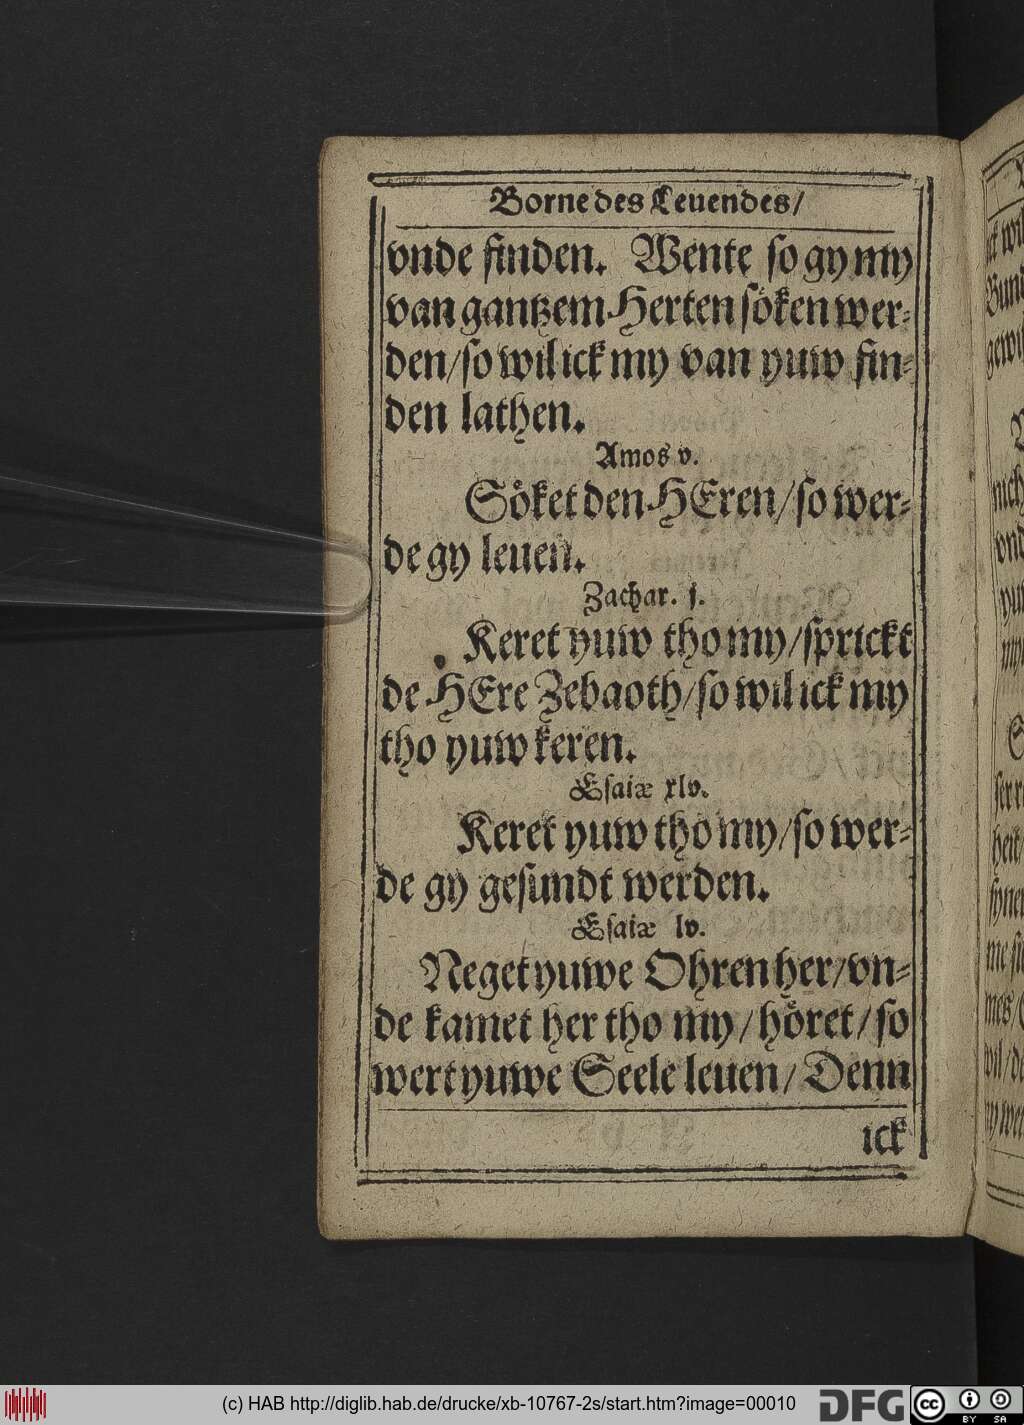 Borne des Leuendes/
vnde finden. Wente so gy my
van gantzem Herten söken wer-
den/so wil ick my van yuw fin-
den lathen.
Amos v.
Söket den HEren/so wer-
de gy leuen.
Zachar. j.
Keret yuw tho my/sprickt
de HEre Zebaoth/so wil ick my
tho yuw keren.
Esaiæ xlv.
Keret yuw tho my/so wer-
de gy gesundt werden.
Esaiæ lv.
Neget yuwe Ohren her/vn-
de kamet her tho my/höret/so
wert yuwe Seele leuen/Denn
ick
(c) HAB http://diglib.hab.de/drucke/xb-10767-2s/start.htm?image=00010
DFG
cc BY SA